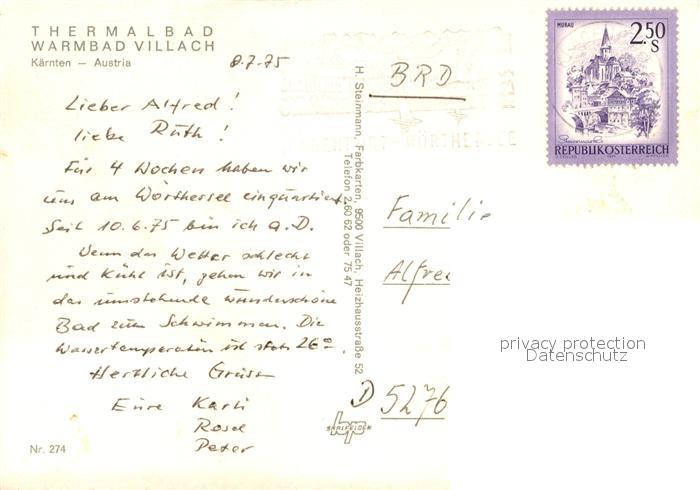 THERMALBAD
WARMBAD VILLACH
Kärnten — Austria
8.7.75
Lieber Alfred!
liebe Ruth!
Für 4 Wochen haben wir
uns am Wörthersee einquartiert
Seit 10.6.75 bin ich a.D.
Wenn das Wetter schlecht
und kühl ist, gehen wir in
das umstehende wunderschöne
Bad zum Schwimmen. Die
Wassertemperatur ist stets 26°.
Herzliche Grüsse
Eure Karli
Rosel
Peter
Nr. 274
H. Steinmann, Farbkarten, 9500 Villach, Heizhausstraße 52
Telefon 2 60 62 oder 75 47
SAALFELDEN
BRD
Familie
Alfre
D 5276
MURAU
2.50
S
Steiermark
REPUBLIK ÖSTERREICH
WÖRTHERSEE
privacy protection
Datenschutz